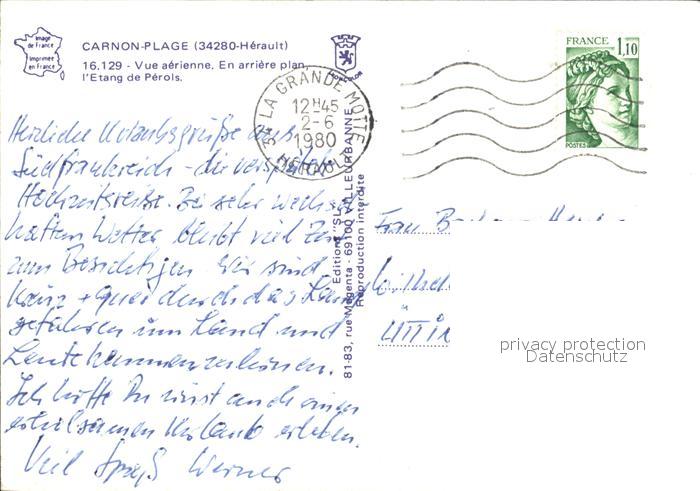 Image
de France
Imprimée
en France
CARNON-PLAGE (34280-Hérault)
16.129 - Vue aérienne. En arrière plan,
l'Etang de Pérols.
FRANCE
1,10
POSTES
34 LA GRANDE MOTTE
12H45
2-6
1980
HERAULT
Editions "SL"
81-83, rue Magenta - 69100 VILLEURBANNE
Reproduction interdite
Herzliche Urlaubsgrüße aus
Südfrankreich - die verspätete
Hochzeitsreise. Bei sehr wechsel
haftem Wetter bleibt viel Zeit
zum Besichtigen. Wir sind
kreuz + quer durch das Land
gefahren um Land und
Leute kennenzulernen.
Ich hoffe Du wirst auch einen
erholsamen Urlaub erleben.
Viel Spaß Werner
Frau
privacy protection
Datenschutz